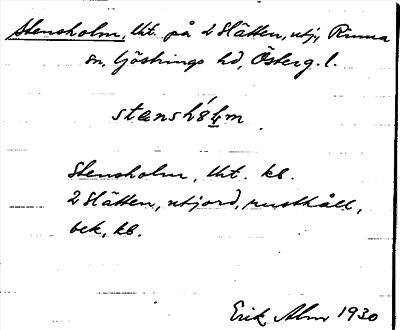 Stensholm, lht. på 2 Slätten, utj., Rinna
sn, Göstrings hd, Österg. l.
Stensholm, lht. kb.
2 Slätten, utjord, rusthåll,
bek, kb.
Erik Alm 1930